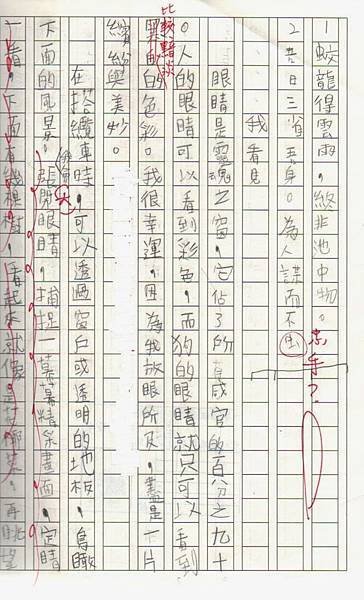 1 蛟龍得雲雨，終非池中物。
2 吾日三省吾身。為人謀而不
忠乎？
我看見
眼睛是靈魂之窗，它佔了所有感官的百分之九十
。人的眼睛可以看到彩色，而狗的眼睛就只可以看到
比較黯淡
的色彩。我很幸運，因為我放眼所及，盡是一片
繽紛與美妙。
在搭纜車時，可以透過窗戶或透明的地板，鳥瞰
下面的風景。張開眼睛，捕捉一幕幕精采畫面，定睛
一看，下面有幾棵樹，看起來就像是花椰菜，再眺望